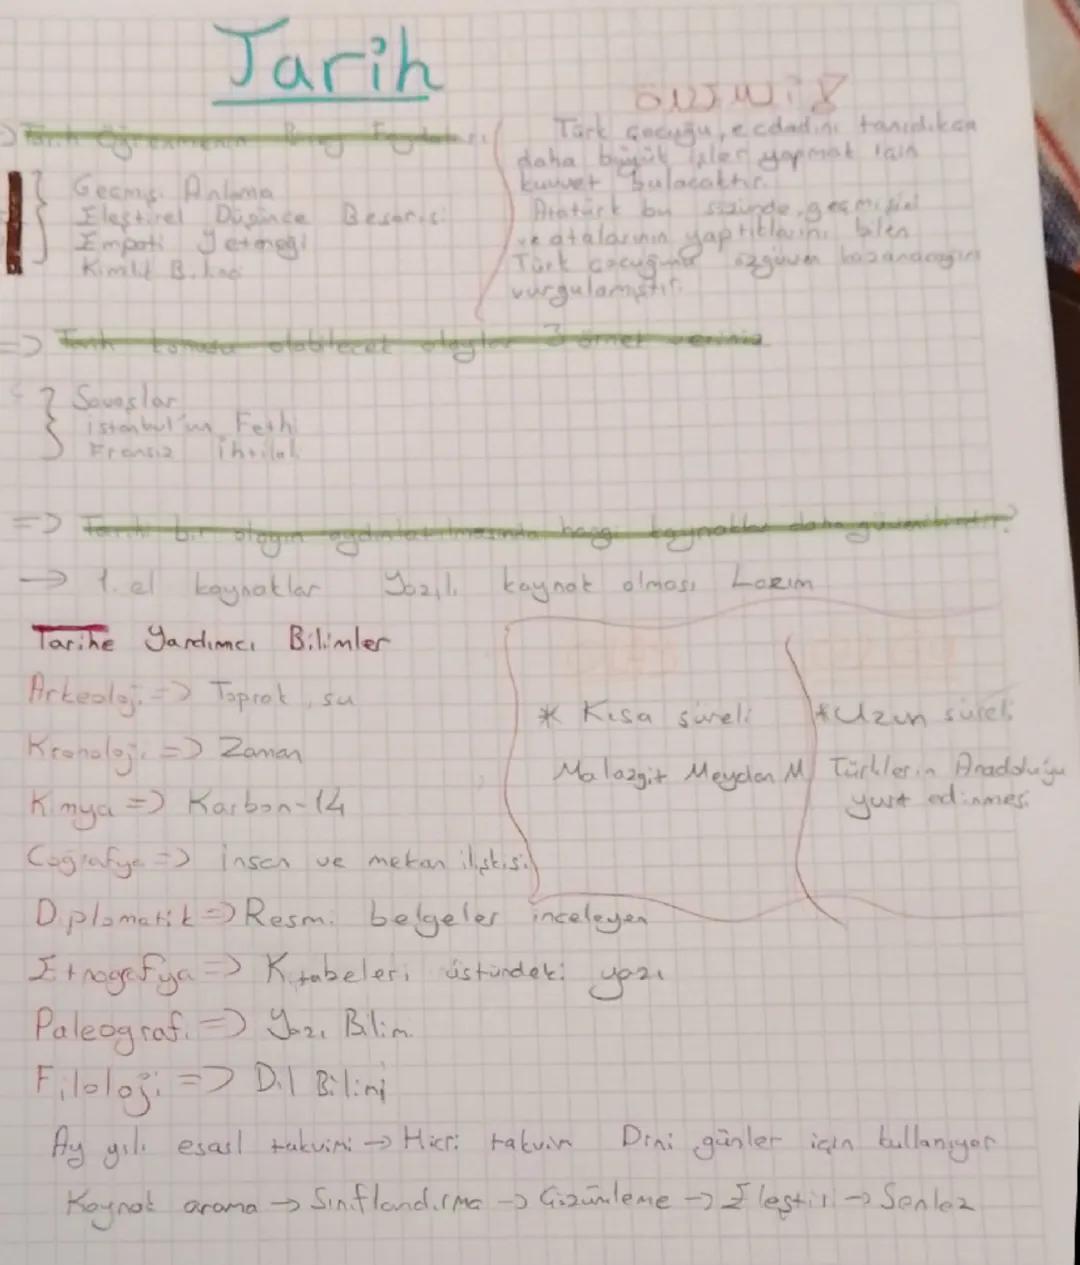 Tarih
=> Tarih Öğrenmenin
Geçmişi Anlama
Eleştirel Düşünce Beserisi
Empati Yeteneği
Kimlik
Türk çocuğu, ecdadını tanıdıkça
daha büyük işler yapmak için
kuvvet bulacaktır.
Atatürk bu sözünde, geçmişini
ve atalarının yaptıklarını bilen
Türk çocuğuna özgüven kazandıcağını
vurgulamıştır.
=> Tarih konusu olabilecek olaylar 3 örnek veriniz
Savaşlar
istanbul'un Fethi
Fransız ihtilali
=> Tarihi bir olayın aydınlatılmasında hangi kaynaklar daha güvenilirdir?
-> 1. el kaynaklar Yazılı kaynak olması Lazım
Tarihe Yardımcı Bilimler
Arkeoloji => Toprak, su
Kronoloji => Zaman
Kimya => Karbon-14
Coğrafya => insan ve mekan ilişkisi
Diplomatik => Resmi belgeler inceleyen
Etnografya => Kitabeleri üstündeki yazı
Paleografi => Yazı Bilim
Filoloji => Dil Bilimi
* Kısa süreli
Malazgit Meydan M
* Uzun süreli
Türklerin Anadoluyu
yurt edinmesi
Ay yılı esaslı takvimi -> Hicri takvim Dini günler için kullanıyor
Kaynak arama -> Sınıflandırma -> Çözümleme -> Eleştiri -> Sentez